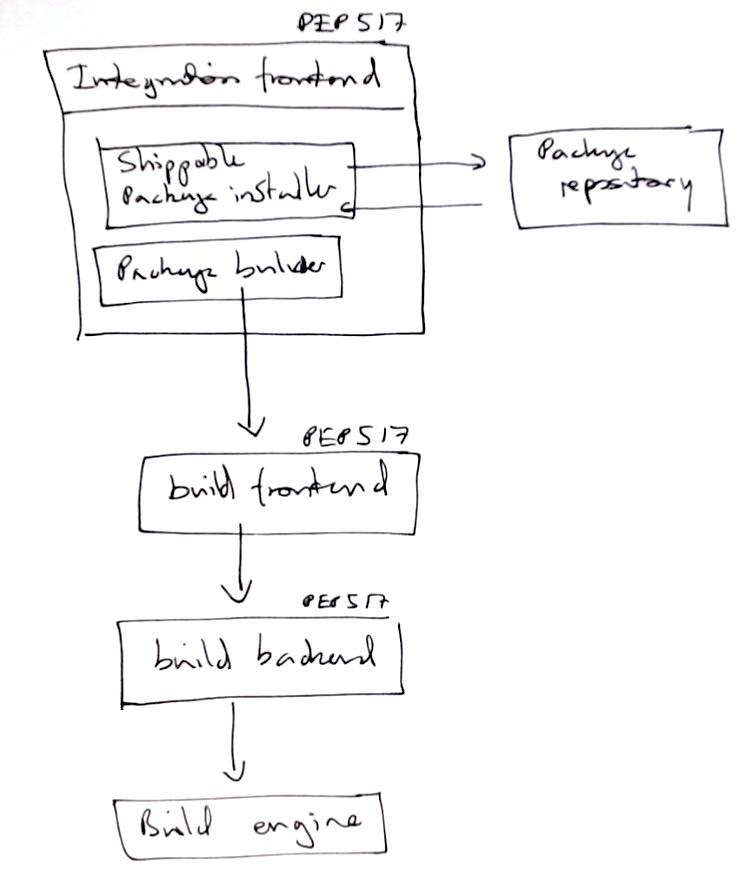 PEP517
Integration frontend
Shippable
Package installer
Package
repository
Package builder
PEP517
build frontend
PEP517
build backend
Build engine